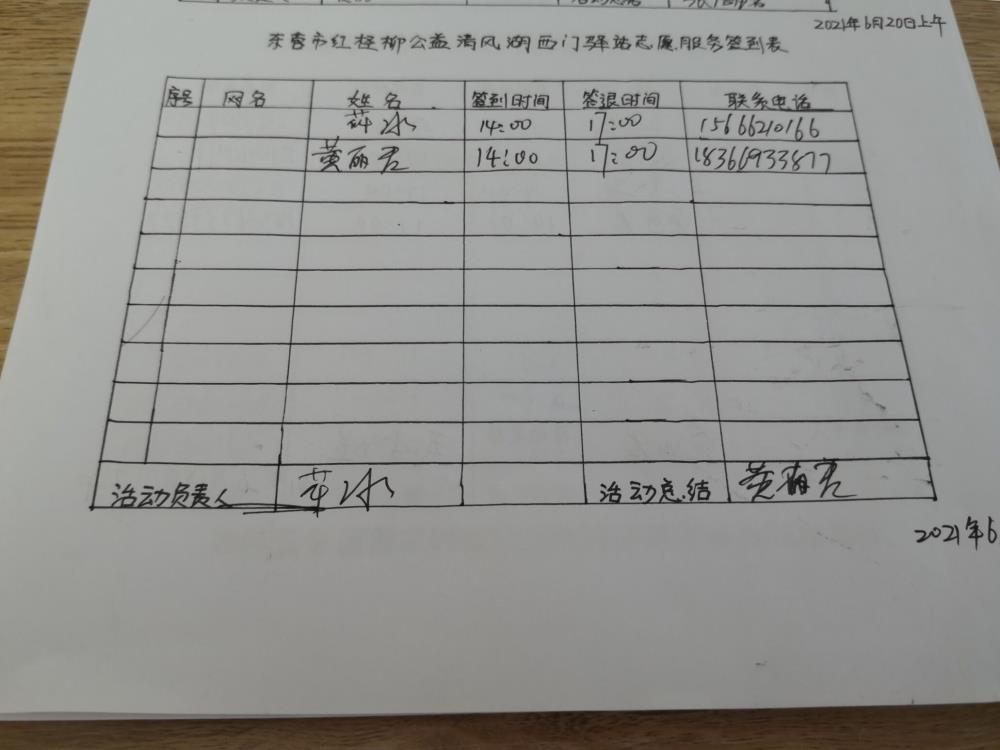 2021年6月20日上午
东营市红柽柳公益清风湖西门驿站志愿服务签到表
序号 网名 姓名 签到时间 签退时间 联系电话
冰 14:00 17:00 15666210166
黄丽君 14:00 17:00 18366933877
活动负责人 冰 活动总结 黄丽君
2021年6